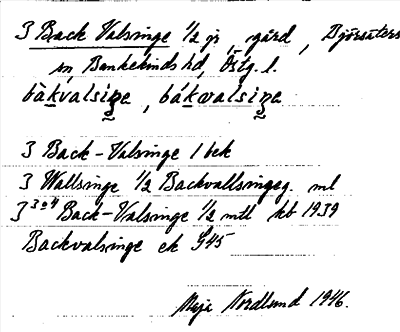 3 Back Valsinge 1/2 gs, gård, Björsäters
sn, Bankekinds hd, Östg. l.
bàkvalsiŋe, bákvalsiŋe
3 Back-Valsinge 1 bek
3 Wallsinge 1/2 Backvallsingeg. ml
3 3o4 Back-Valsinge 1/2 mtl kb 1939
Backvalsinge ek S45
Maja Nordlund 1946.